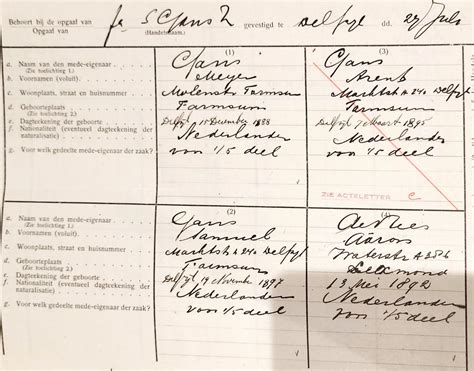 Behoort bij de opgaaf van fa S Cjans Z gevestigd te Delfzyl dd. 27 Juli
Opgaaf van (Handelsnaam)
(1) (3)
a. Naam van den mede-eigenaar Cjans Cjans
(Zie toelichting 1.)
b. Voornamen (voluit). Meyer Arent
c. Woonplaats, straat en huisnummer Molenstr Farmsum Marktstr A 240 Delfzyl
d. Geboorteplaats Farmsum Farmsum
(Zie toelichting 2.)
e. Dagteekening der geboorte Delfzyl 15 December 1888 Delfzyl 9 Maart 1895
f. Nationaliteit (eventueel dagteekening der naturalisatie) Nederlander Nederlander
g. Voor welk gedeelte mede-eigenaar der zaak? voor 1/5 deel voor 1/5 deel
ZIE ACTELETTER C
(2) (4)
a. Naam van den mede-eigenaar Cjans de Vries
(Zie toelichting 1.)
b. Voornamen (voluit). Samuel Aäron
c. Woonplaats, straat en huisnummer Marktstr A 240 Delfzyl Waterstr A 286
d. Geboorteplaats Farmsum
(Zie toelichting 2.)
e. Dagteekening der geboorte Delfzyl 14 November 1897 13 Mei 1892
f. Nationaliteit (eventueel dagteekening der naturalisatie) Nederlander Nederlander
g. Voor welk gedeelte mede-eigenaar der zaak? voor 1/5 deel voor 1/5 deel